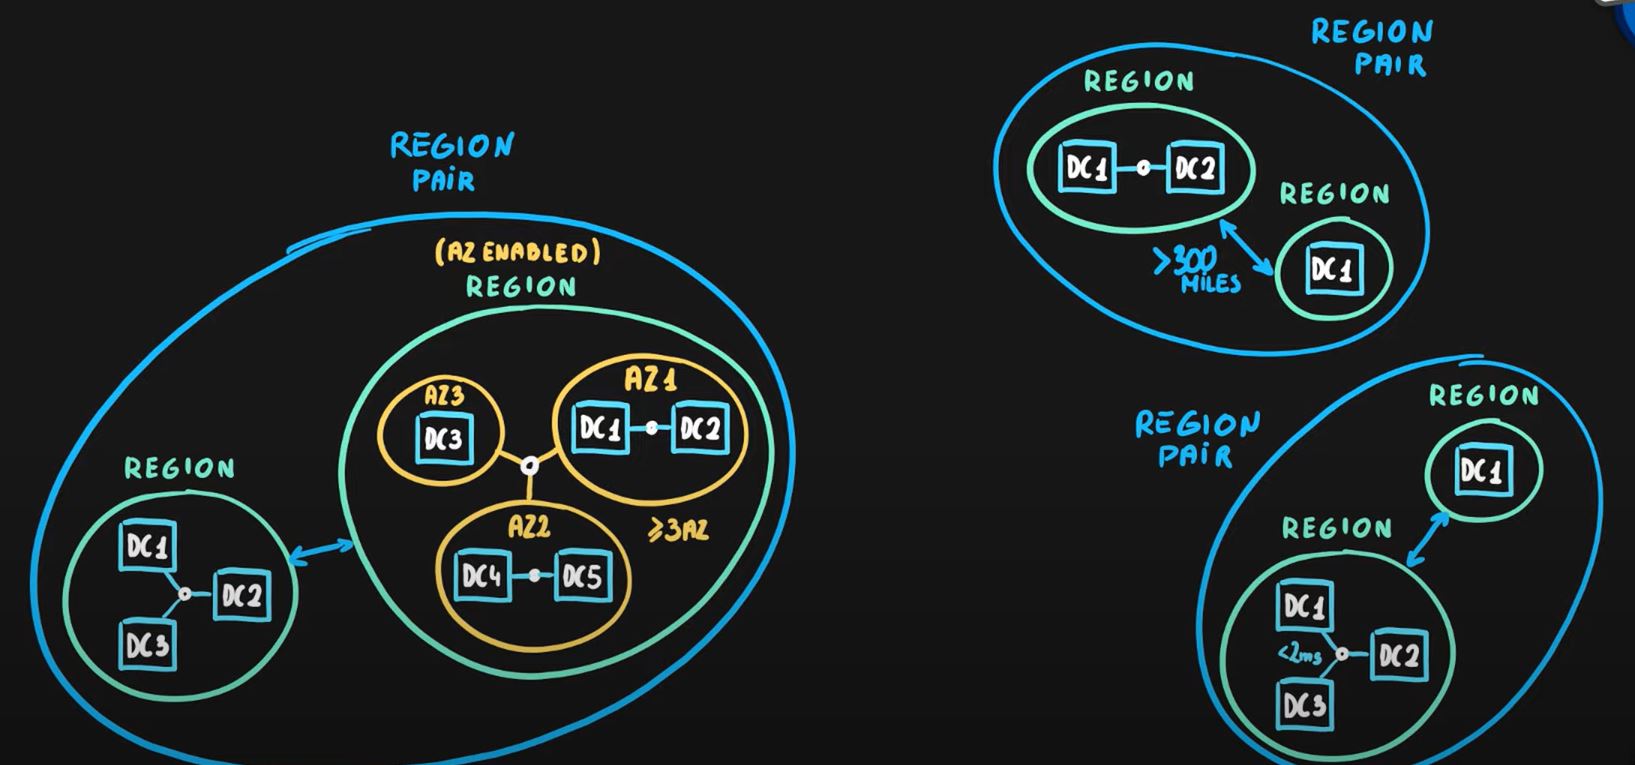 REGION
PAIR
(AZ ENABLED)
REGION
AZ3
DC3
AZ1
DC1
DC2
AZ2
DC4
DC5
≥3AZ
REGION
DC1
DC2
DC3
REGION
PAIR
REGION
DC1
DC2
REGION
DC1
>300
MILES
REGION
PAIR
REGION
DC1
REGION
DC1
<2ms
DC2
DC3